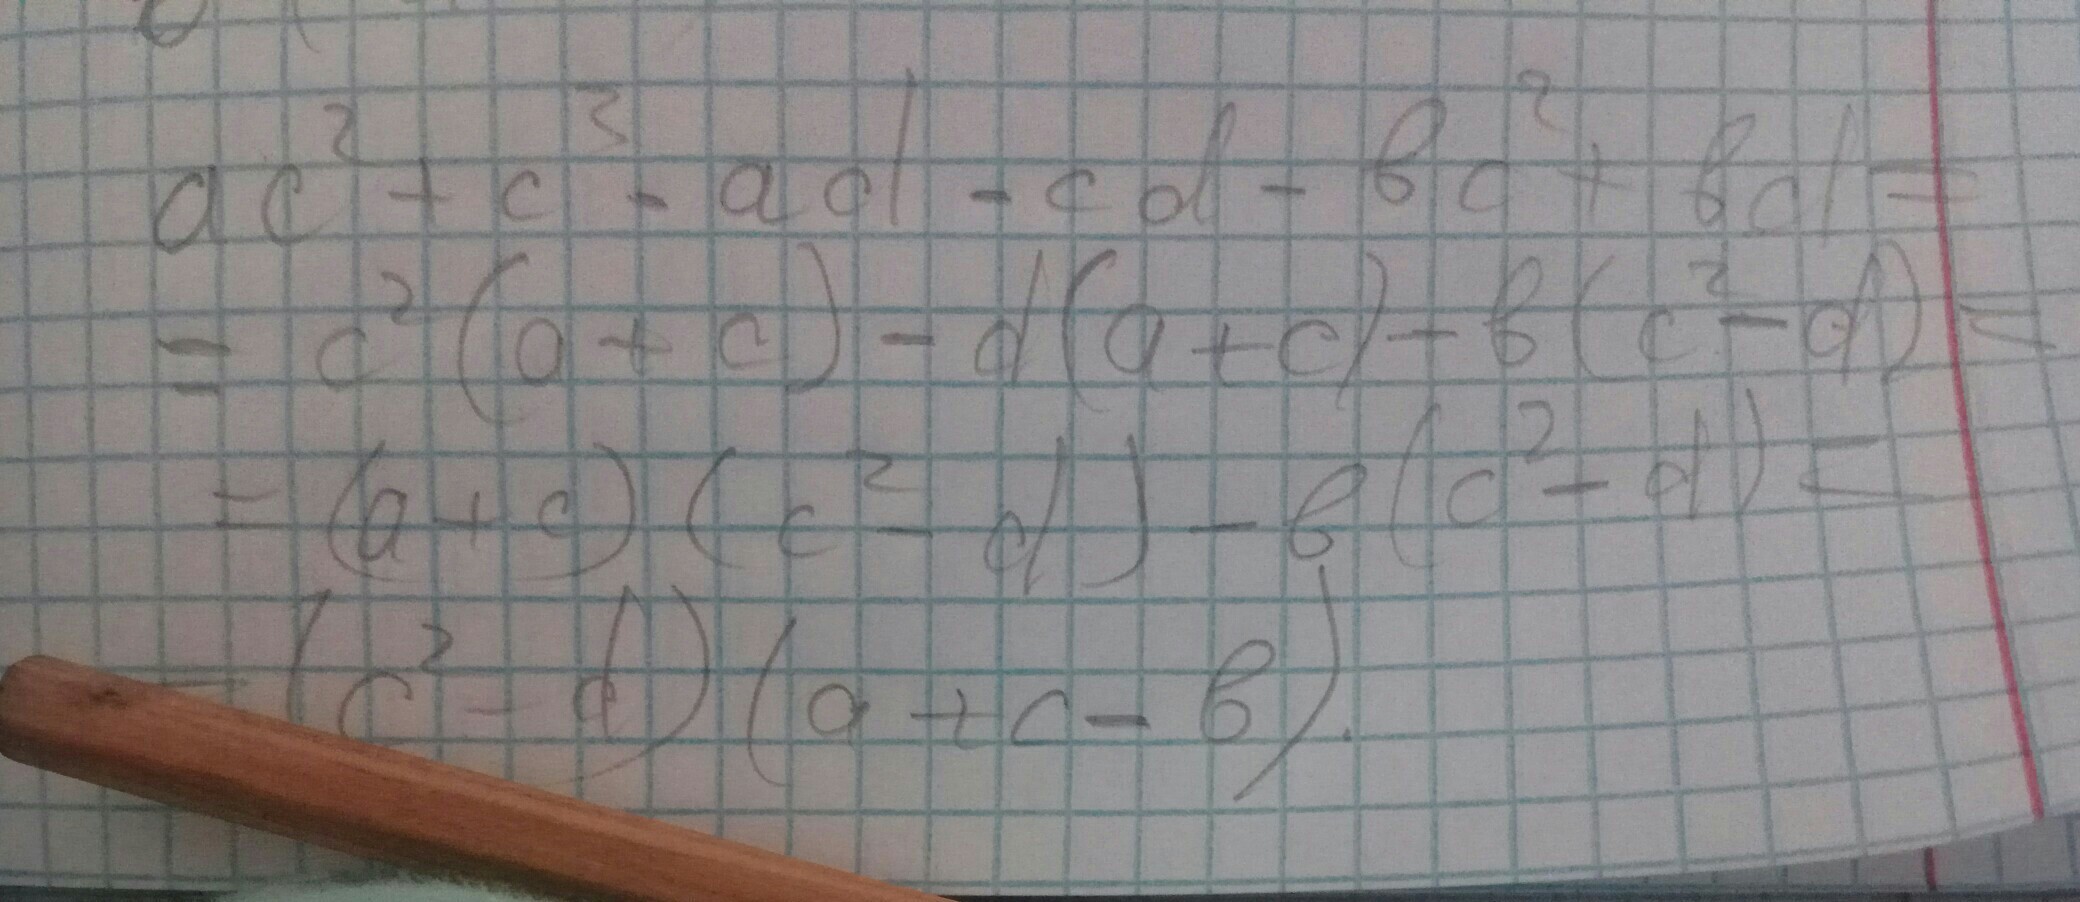 ac² + c³ - ad - cd - bc² + bd =
= c²(a + c) - d(a + c) - b(c² - d) =
= (a + c)(c² - d) - b(c² - d) =
= (c² - d)(a + c - b).